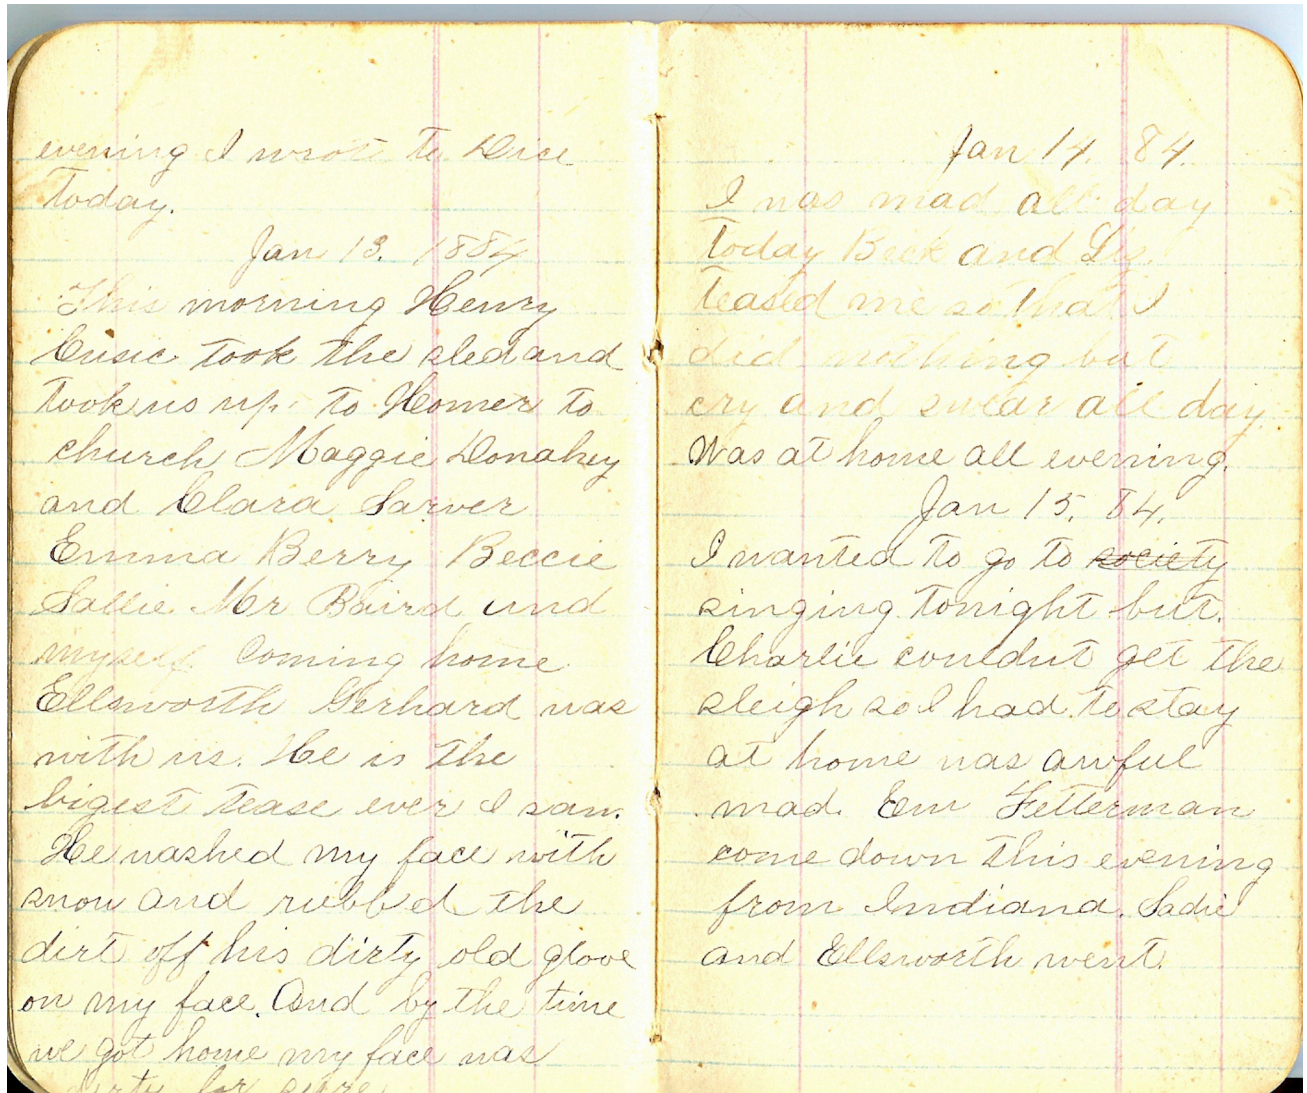 evening I wrote to Dice
today.
Jan 13. 1884
This morning Henry
Cusic took the sled and
took us up to Homer to
church Maggie Donahey
and Clara Sarver
Emma Berry Beccie
Sallie Mr Baird and
myself Coming home
Ellsworth Gerhard was
with us. He is the
bigest tease ever I saw.
He washed my face with
snow and rubbed the
dirt off his dirty old glove
on my face. And by the time
we got home my face was
dirty for sure
Jan 14. 84.
I was mad all day
today Beck and Liz
teased me so that I
did nothing but
cry and swear all day
Was at home all evening.
Jan 15. 84.
I wanted to go to society
singing tonight but.
Charlie couldnt get the
sleigh so I had to stay
at home was awful
mad. Em Fetterman
come down this evening
from Indiana. Sadie
and Ellsworth went.